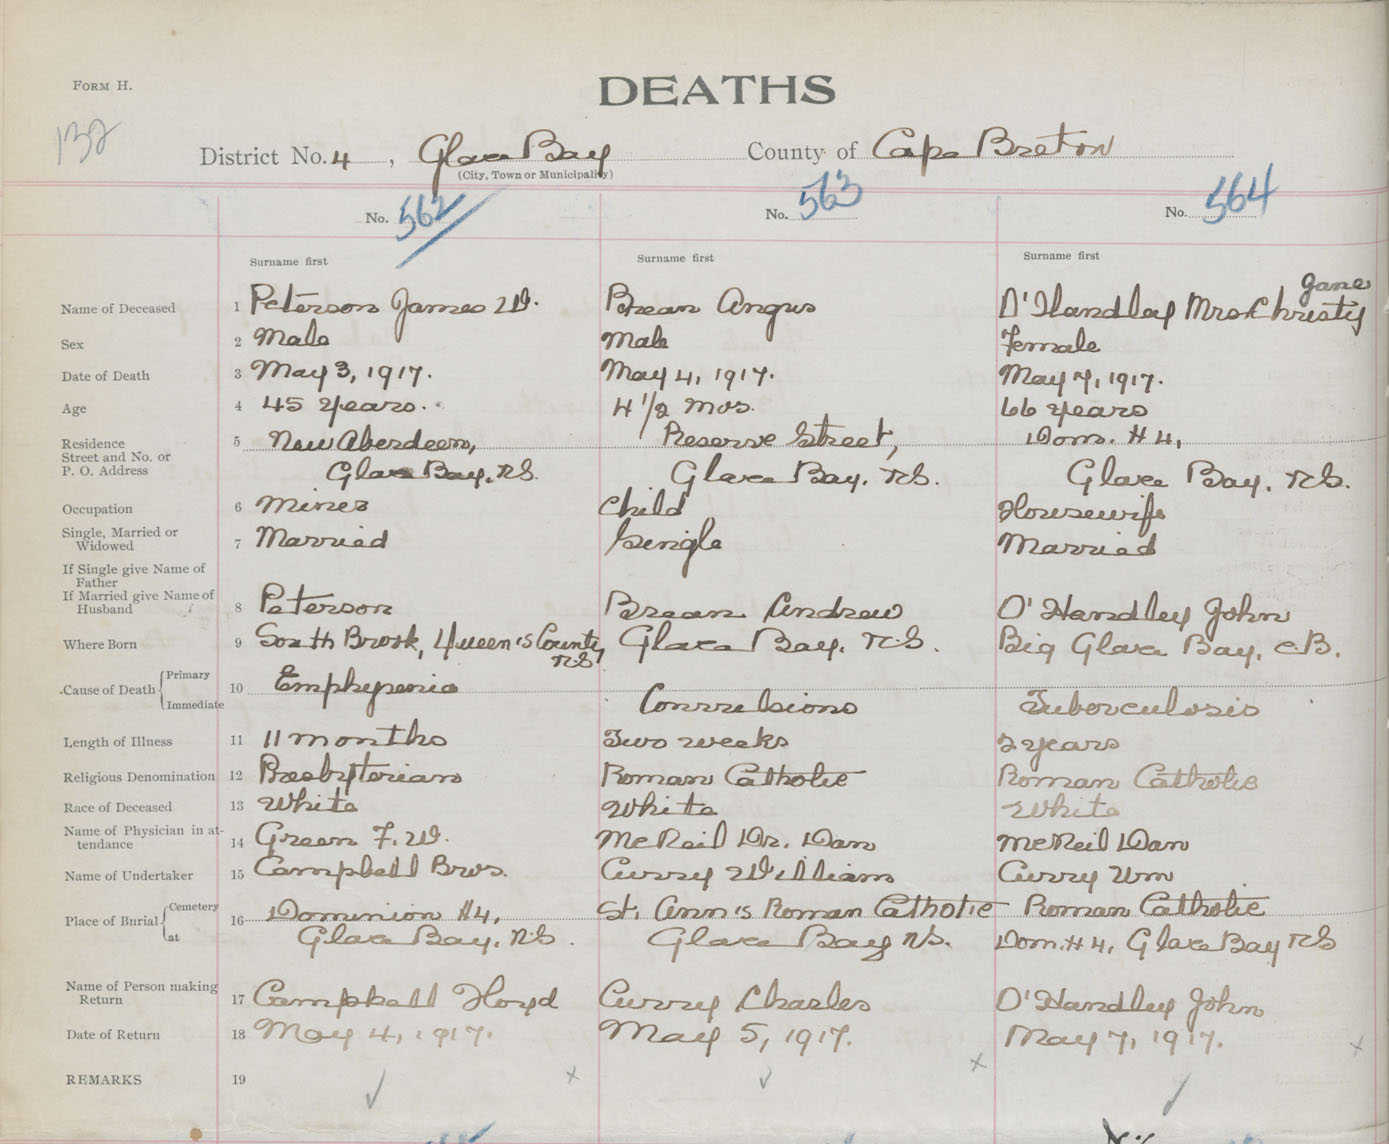 FORM H.
DEATHS
132
District No. 4, Glace Bay County of Cape Breton
(City, Town or Municipality)
No. 562 No. 563 No. 564
Surname first Surname first Surname first
Jane
Name of Deceased 1 Peterson James W. Brean Angus O'Handley Mrs Christy
Sex 2 Male Male Female
Date of Death 3 May 3, 1917. May 4, 1917. May 7, 1917.
Age 4 45 years. 4 1/2 mos. 66 years
Residence 5 New Aberdeen, Reserve Street, Dom. #4,
Street and No. or
P. O. Address Glace Bay, N.S. Glace Bay, N.S. Glace Bay, N.S.
Occupation 6 Miner Child Housewife
Single, Married or
Widowed 7 Married Single Married
If Single give Name of
Father
If Married give Name of
Husband 8 Peterson Brean Andrew O'Handley John
Where Born 9 South Brook, Queen's County Glace Bay, N.S. Big Glace Bay, C.B.
N.S
Cause of Death Primary 10 Emphysema
Immediate Convulsions Tuberculosis
Length of Illness 11 11 months Two weeks 2 years
Religious Denomination 12 Presbyterian Roman Catholic Roman Catholic
Race of Deceased 13 White White White
Name of Physician in at-
tendance 14 Green F. W. McNeil Dr. Dan McNeil Dan
Name of Undertaker 15 Campbell Bros. Curry William Curry Wm
Place of Burial Cemetery 16 Dominion #4, St. Ann's Roman Catholic Roman Catholic
at Glace Bay, N.S. Glace Bay N.S. Dom. #4, Glace Bay N S
Name of Person making
Return 17 Campbell Floyd Curry Charles O'Handley John
Date of Return 18 May 4, 1917. May 5, 1917. May 7, 1917.
REMARKS 19